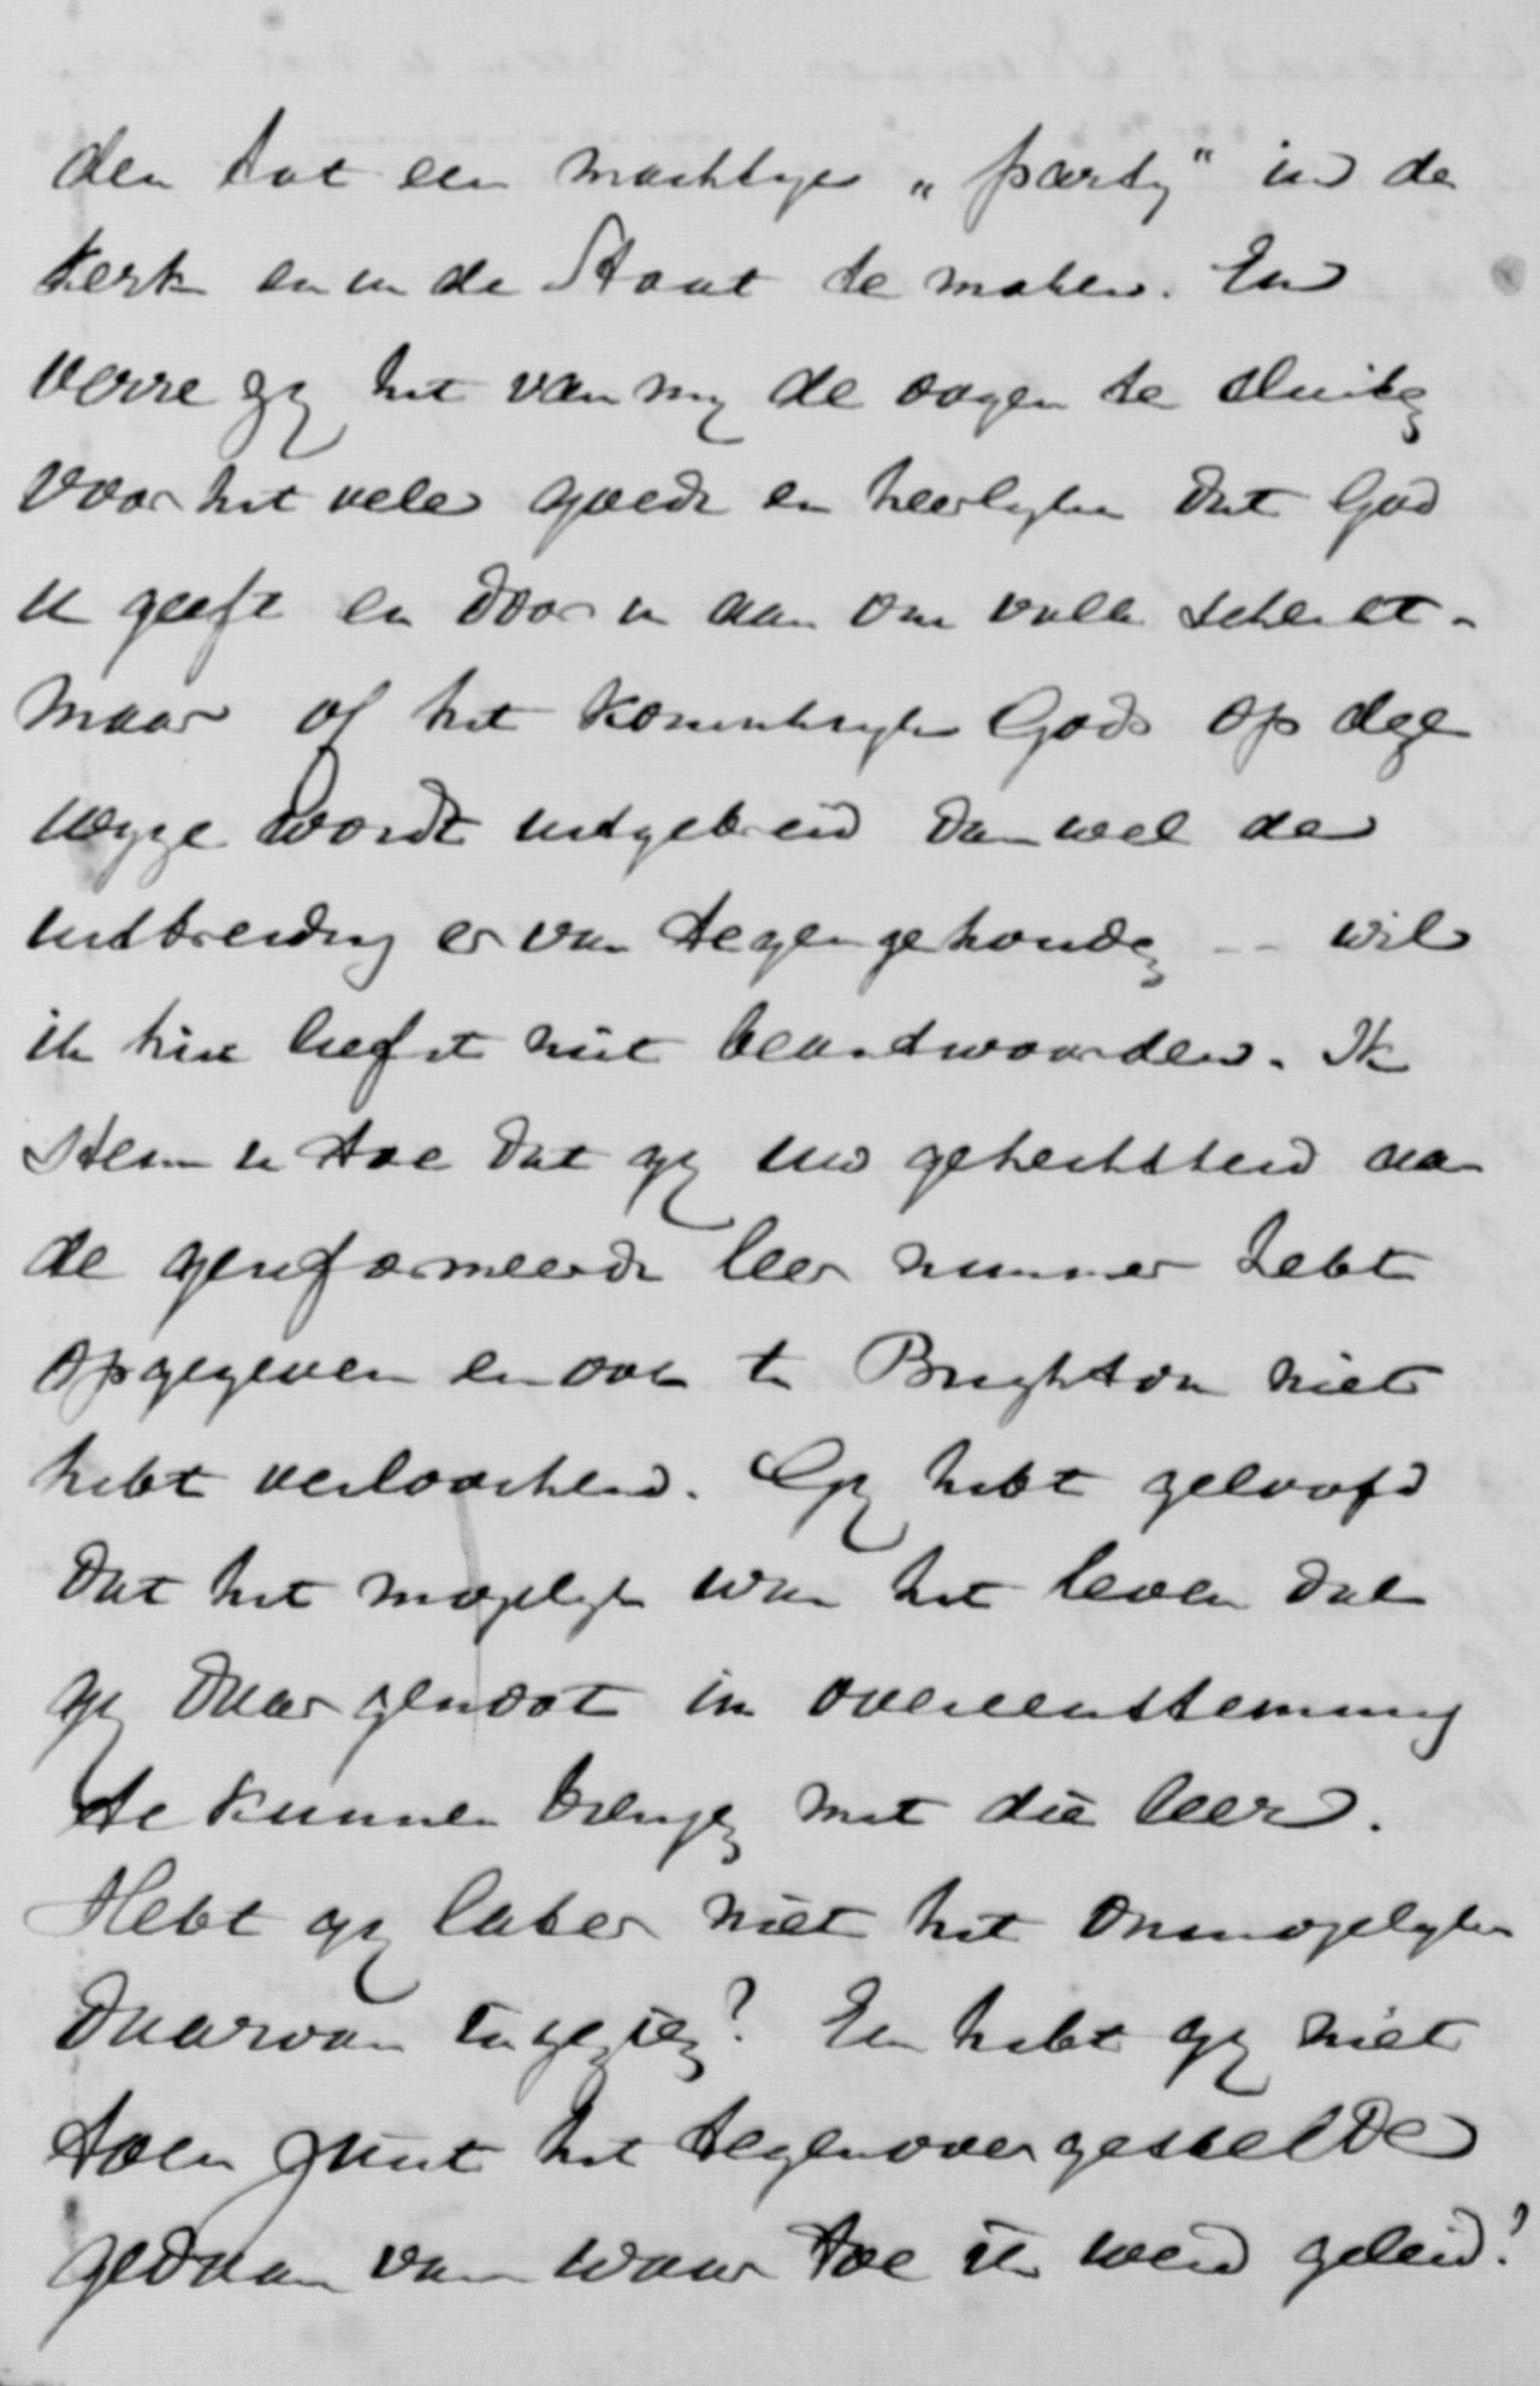 den tot een machtige „party" in de
Kerk en in de Staat te maken. En
verre zij het van mij de oogen te sluiten
voor het vele goede en heerlijke dat God
u geeft en door u aan ons volk schenkt.
Maar of het Koninkrijk Gods op deze
wijze wordt uitgebreid dan wel de
uitbreiding er van tegengehouden -- wil
ik hier liefst niet beantwoorden. Ik
stem u toe dat gij uw gehechtheid aan
de gereformeerde leer nimmer hebt
opgegeven en ook te Brighton niet
hebt verloochend. Gij hebt geloofd
dat het mogelijk was het leven dat
gij daar genoot in overeenstemming
te kunnen brengen met die leer.
Hebt gij later niet het onmogelijke
daarvan ingezien? En hebt gij niet
toen juist het tegenovergestelde
gedaan van waar toe ik werd geleid?